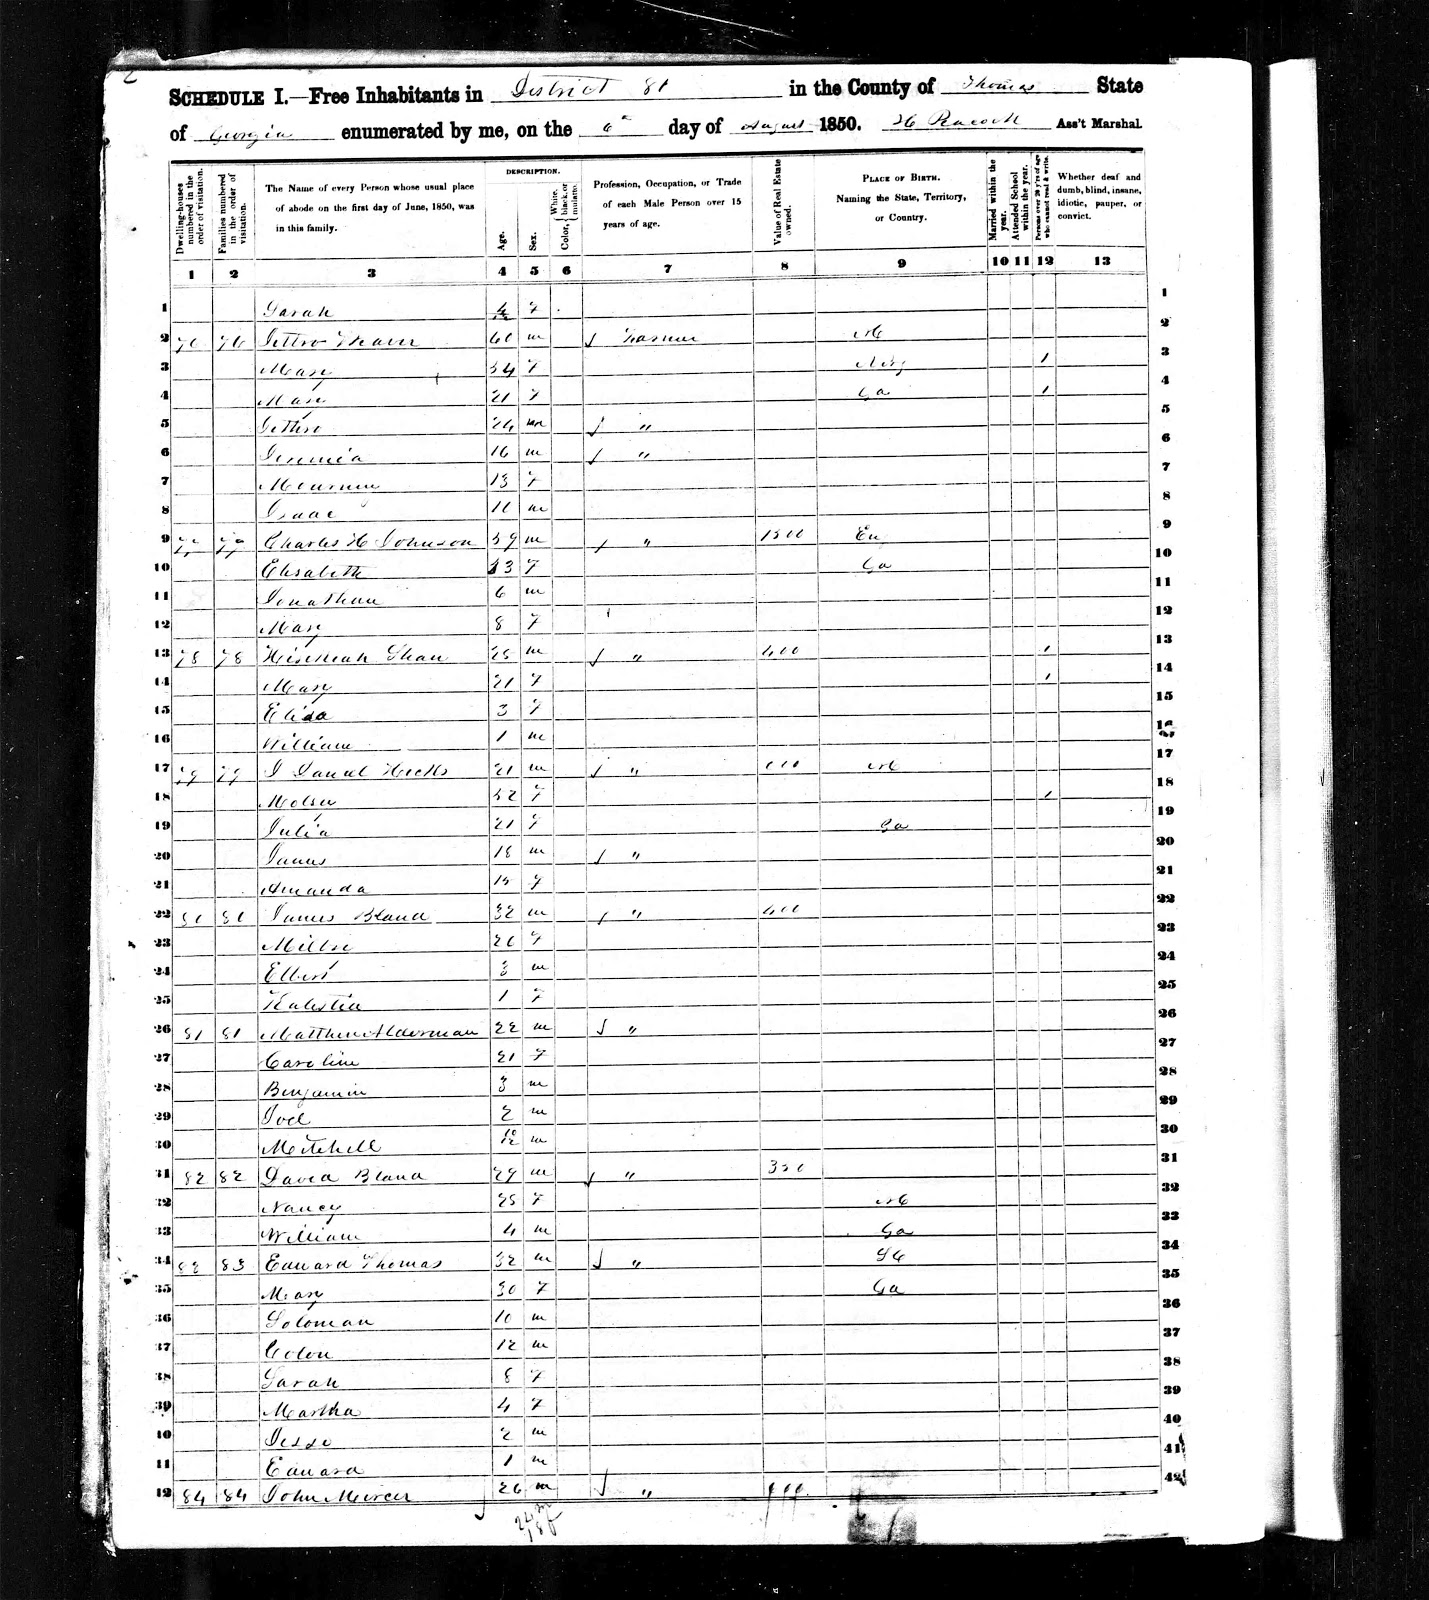 2
SCHEDULE I.—Free Inhabitants in District 80 in the County of Thomas State
of Georgia enumerated by me, on the 6th day of August 1850. H Peacock Ass't Marshal.
Dwelling-houses numbered in the order of visitation.
Families numbered in the order of visitation.
The Name of every Person whose usual place of abode on the first day of June, 1850, was in this family.
DESCRIPTION.
Age.
Sex.
Color, { White, black, or mulatto.
Profession, Occupation, or Trade of each Male Person over 15 years of age.
Value of Real Estate owned.
PLACE OF BIRTH. Naming the State, Territory, or Country.
Married within the year.
Attended School within the year.
Persons over 20 y'rs of age who cannot read & write.
Whether deaf and dumb, blind, insane, idiotic, pauper, or convict.
1 2 3 4 5 6 7 8 9 10 11 12 13
1 Sarah F 1
2 76 76 60 m Farmer NC 2
3 Mary 54 F 1 3
4 Mary 21 F Ga 1 4
5 Jethro 24 m " 5
6 Jeremia 16 m " 6
7 13 F 7
8 Isaac m 8
9 77 77 Charles H Johnson 59 m " 1500 En 9
10 Elisabeth F Ga 10
11 Jonathan 6 m 11
12 Mary 8 F 12
13 78 78 25 m " 400 1 13
14 Mary 21 F 1 14
15 Elisa 3 F 15
16 William 1 m 16
17 79 79 Hicks 21 m " NC 17
18 52 F 1 18
19 Julia 21 F Ga 19
20 James 18 m " 20
21 Amanda 15 F 21
22 80 80 James Bland 32 m " 400 22
23 26 F 23
24 3 m 24
25 1 F 25
26 81 81 Matthew Alderman 22 m " 26
27 Caroline 21 F 27
28 Benjamin 3 m 28
29 Joel 2 m 29
30 Mitchell 10/12 m 30
31 82 82 David Bland 29 m " 350 31
32 Nancy 25 F NC 32
33 William 4 m Ga 33
34 83 83 Edward Thomas 32 m " SC 34
35 Mary 30 F Ga 35
36 Soloman 10 m 36
37 Colon 12 m 37
38 Sarah 8 F 38
39 Martha 4 F 39
40 Jesse 2 m 40
41 Edward 1 m 41
42 84 84 John Mercer 26 m " 42